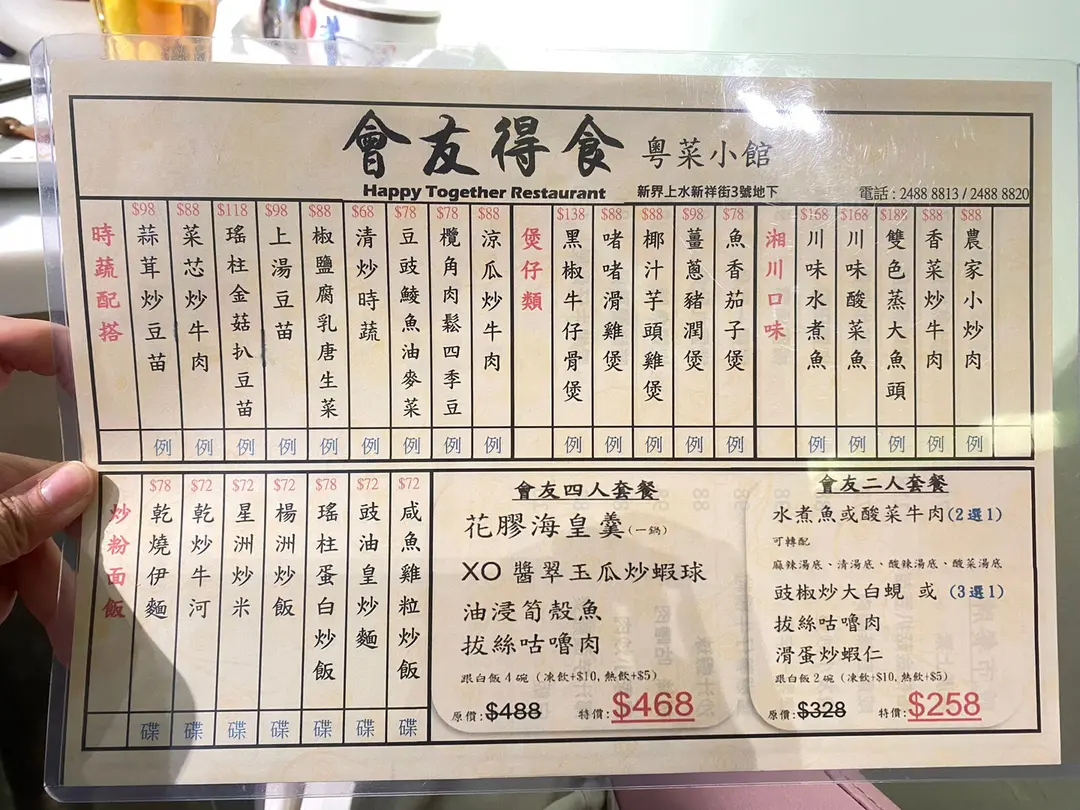 會友得食 粵菜小館
Happy Together Restaurant 新界上水新祥街3號地下 電話 : 2488 8813 / 2488 8820
時蔬配搭
$98 蒜茸炒豆苗 例
$88 菜芯炒牛肉 例
$118 瑤柱金菇扒豆苗 例
$98 上湯豆苗 例
$88 椒鹽腐乳唐生菜 例
$68 清炒時蔬 例
$78 豆豉鯪魚油麥菜 例
$78 欖角肉鬆四季豆 例
$88 涼瓜炒牛肉 例
煲仔類
$138 黑椒牛仔骨煲 例
$88 啫啫滑雞煲 例
$88 椰汁芋頭雞煲 例
$98 薑蔥豬潤煲 例
$78 魚香茄子煲 例
湘川口味
$168 川味水煮魚 例
$168 川味酸菜魚 例
$188 雙色蒸大魚頭 例
$88 香菜炒牛肉 例
$88 農家小炒肉 例
炒粉面飯
$78 乾燒伊麵 碟
$72 乾炒牛河 碟
$72 星洲炒米 碟
$72 楊洲炒飯 碟
$78 瑤柱蛋白炒飯 碟
$72 豉油皇炒麵 碟
$72 咸魚雞粒炒飯 碟
會友四人套餐
花膠海皇羹(一鍋)
XO 醬翠玉瓜炒蝦球
油浸筍殼魚
拔絲咕嚕肉
跟白飯 4 碗 (凍飲+$10, 熱飲+$5)
原價: $488 特價: $468
會友二人套餐
水煮魚或酸菜牛肉(2 選 1)
可轉配
麻辣湯底、清湯底、酸辣湯底、酸菜湯底
豉椒炒大白蜆 或 (3 選 1)
拔絲咕嚕肉
滑蛋炒蝦仁
跟白飯 2 碗 (凍飲+$10, 熱飲+$5)
原價: $328 特價: $258